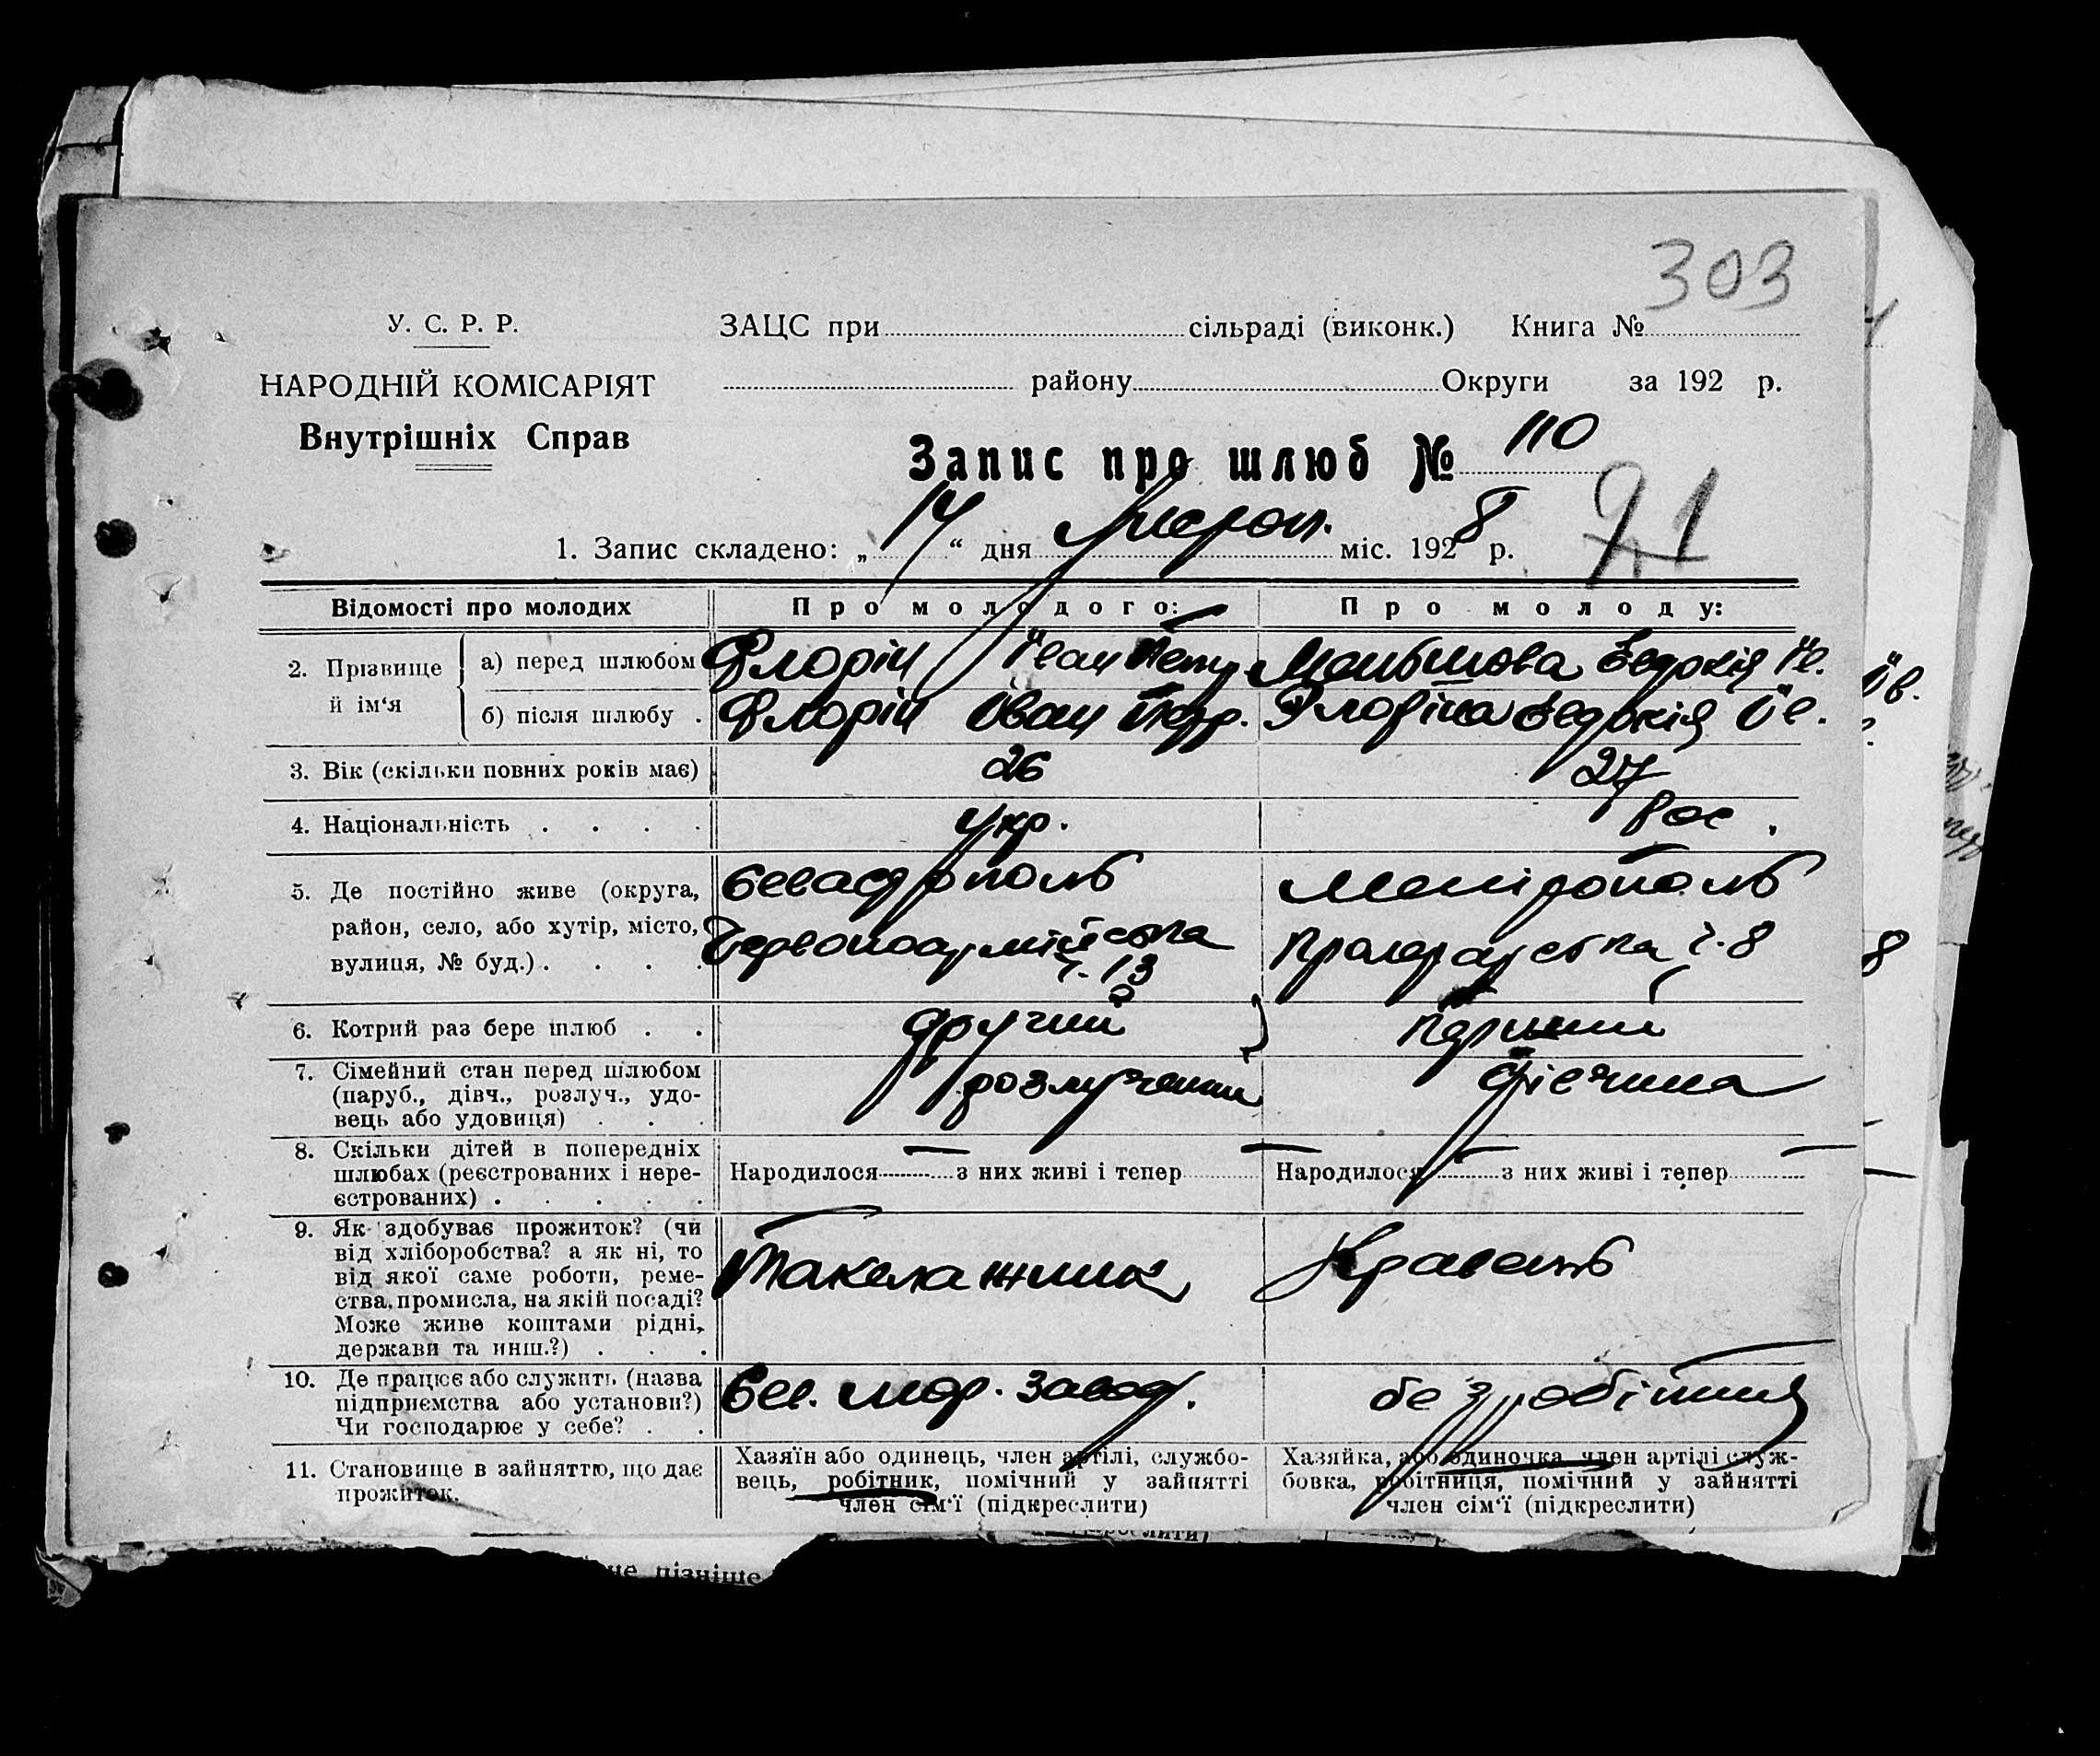 303
У. С. Р. Р.
ЗАЦС при сільраді (виконк.) Книга №
НАРОДНІЙ КОМІСАРІЯТ
району Округи за 192 р.
Внутрішніх Справ
Запис про шлюб № 110
91
1. Запис складено: „14“ дня Листоп. міс. 1928 р.
Відомості про молодих Про молодого: Про молоду:
2. Прізвище й ім‘я
а) перед шлюбом Флорін Іван Петр. Меньшова Євдокія Ів.
б) після шлюбу . Флорін Іван Петр. Флоріна Євдокія Ів.
3. Вік (скільки повних років має) 26 27
4. Національність . . . . Укр. Рос.
5. Де постійно живе (округа, район, село, або хутір, місто, вулиця, № буд.) . . . .
Севастополь
Червоноармійська
ч. 13
Мелітополь
Пролетарська ч. 8
6. Котрий раз бере шлюб . . другий перший
7. Сімейний стан перед шлюбом
(паруб., дівч., розлуч., удо-
вець або удовиця) . . .
розлучений дівчина
8. Скільки дітей в попередніх
шлюбах (реєстрованих і нере-
єстрованих) . . . . .
Народилося — з них живі і тепер — Народилося — з них живі і тепер —
9. Як здобуває прожиток? (чи
від хліборобства? а як ні, то
від якої саме роботи, реме-
ства, промисла, на якій посаді?
Може живе коштами рідні,
держави та инш.?) . . .
Такелажник Кравець
10. Де працює або служить (назва
підприємства або установи?)
Чи господарює у себе? . .
Сев. мор. завод. безробітня
11. Становище в зайняттю, що дає
прожиток.
Хазяїн або одинець, член артілі, службо-
вець, робітник, помічний у зайнятті
член сім‘ї (підкреслити)
Хазяйка, або одиночка член артілі служ-
бовка, робітниця, помічний у зайнятті
член сім‘ї (підкреслити)
Ів.
8
пізніше